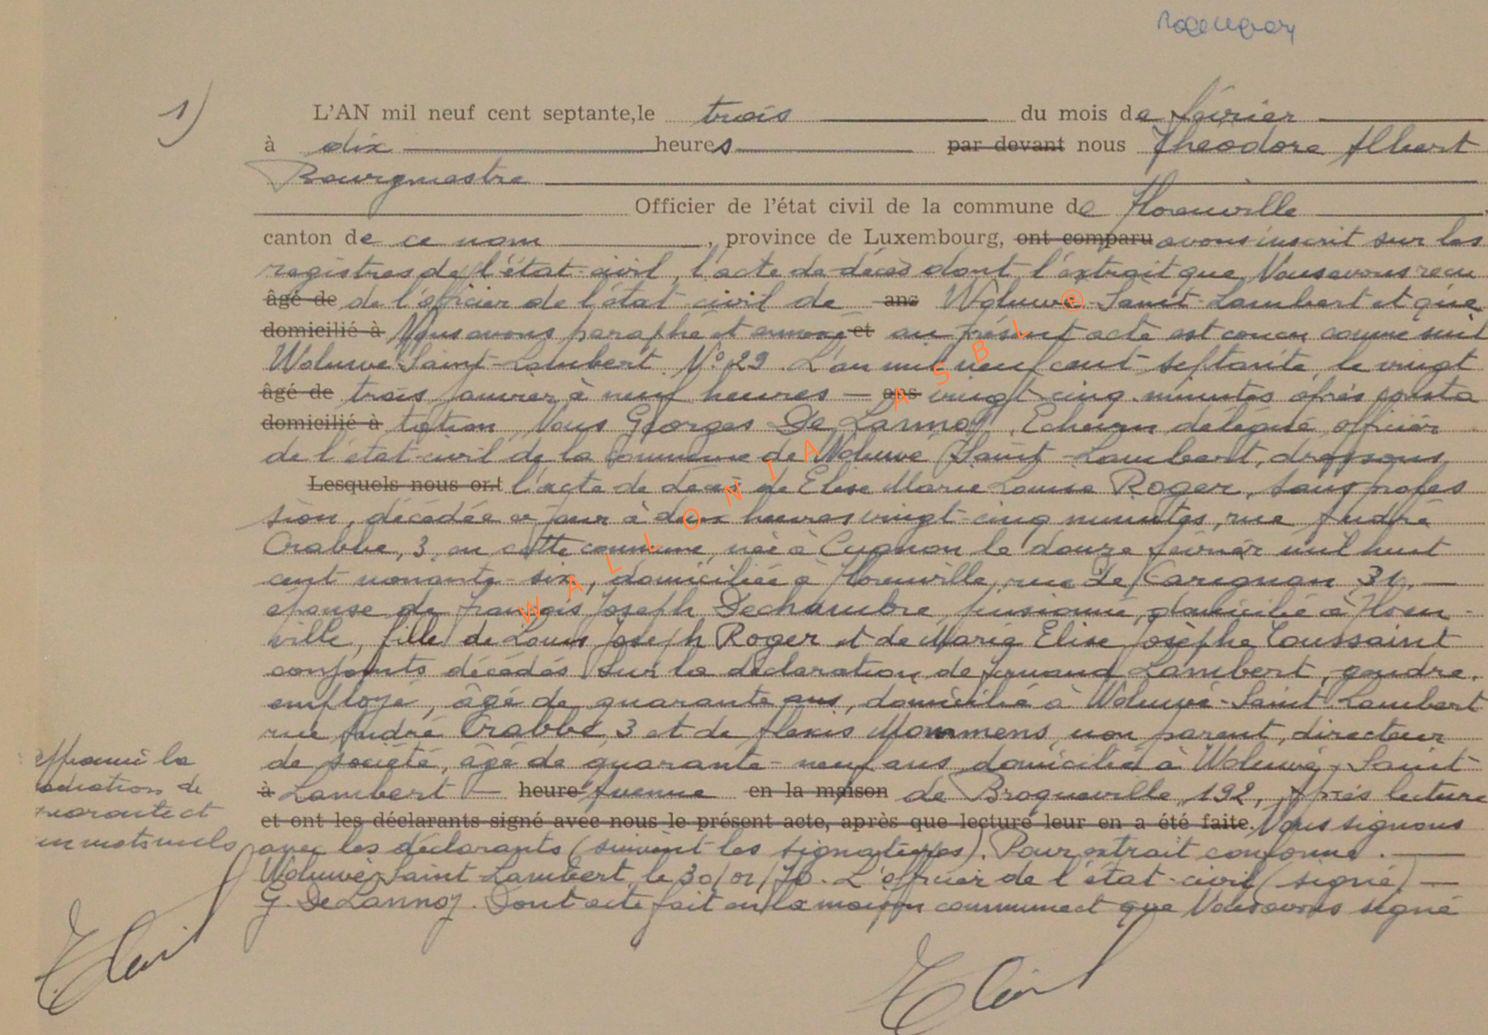 1)
L'AN mil neuf cent septante, le trois du mois de février
à dix heures par devant nous Théodore Albert
Bourgmestre
Officier de l'état civil de la commune de Florenville
canton de ce nom, province de Luxembourg, ont comparu avons inscrit sur les
registres de l'état-civil, l'acte de décès dont l'extrait que Nous avons reçu
âgé de de l'officier de l'état civil de ans Woluwé-Saint-Lambert et que
domicilié à Nous avons paraphé et annexé et au présent acte est conçu comme suit
Woluwé-Saint-Lambert N° 29. L'an mil neuf cent septante, le vingt
âgé de trois janvier à neuf heures — ans vingt cinq minutes après consta
domicilié à tation, Nous Georges De Lannoy, Echevin délégué, officier
de l'état-civil de la commune de Woluwé-Saint-Lambert, dressons
Lesquels nous ont l'acte de décès de Elise Marie Louise Roger, sans profes
sion, décédée ce jour à deux heures vingt-cinq minutes, rue André
Crabbe, 3, en cette commune, née à Cugnon le douze février mil huit
cent nonante-six, domiciliée à Florenville, rue de Carignan 31, —
épouse de François Joseph Dechambre, pensionné, domicilié à Floren-
ville, fille de Louis Joseph Roger et de Marie Elise Josèphe Toussaint
conjoints décédés. Sur la déclaration de Fernand Lambert, gendre,
employé, âgé de quarante ans, domicilié à Woluwé-Saint-Lambert
rue André Crabbé, 3 et de Alexis Mommens, non parent, directeur
de société, âgé de quarante-neuf ans, domicilié à Woluwé-Saint-
à Lambert — heure Avenue en la maison de Broqueville, 192, Après lecture
et ont les déclarants signé avec nous le présent acte, après que lecture leur en a été faite. Nous signons
avec les déclarants (suivent les signatures). Pour extrait conforme. —
Woluwé-Saint-Lambert, le 30/01/70. L'officier de l'état-civil (signé) —
G. De Lannoy. Dont acte fait en la maison commune et que Nous avons signé
radiation de
quarante et
un mots nuls
WALLONIA ASBL ®